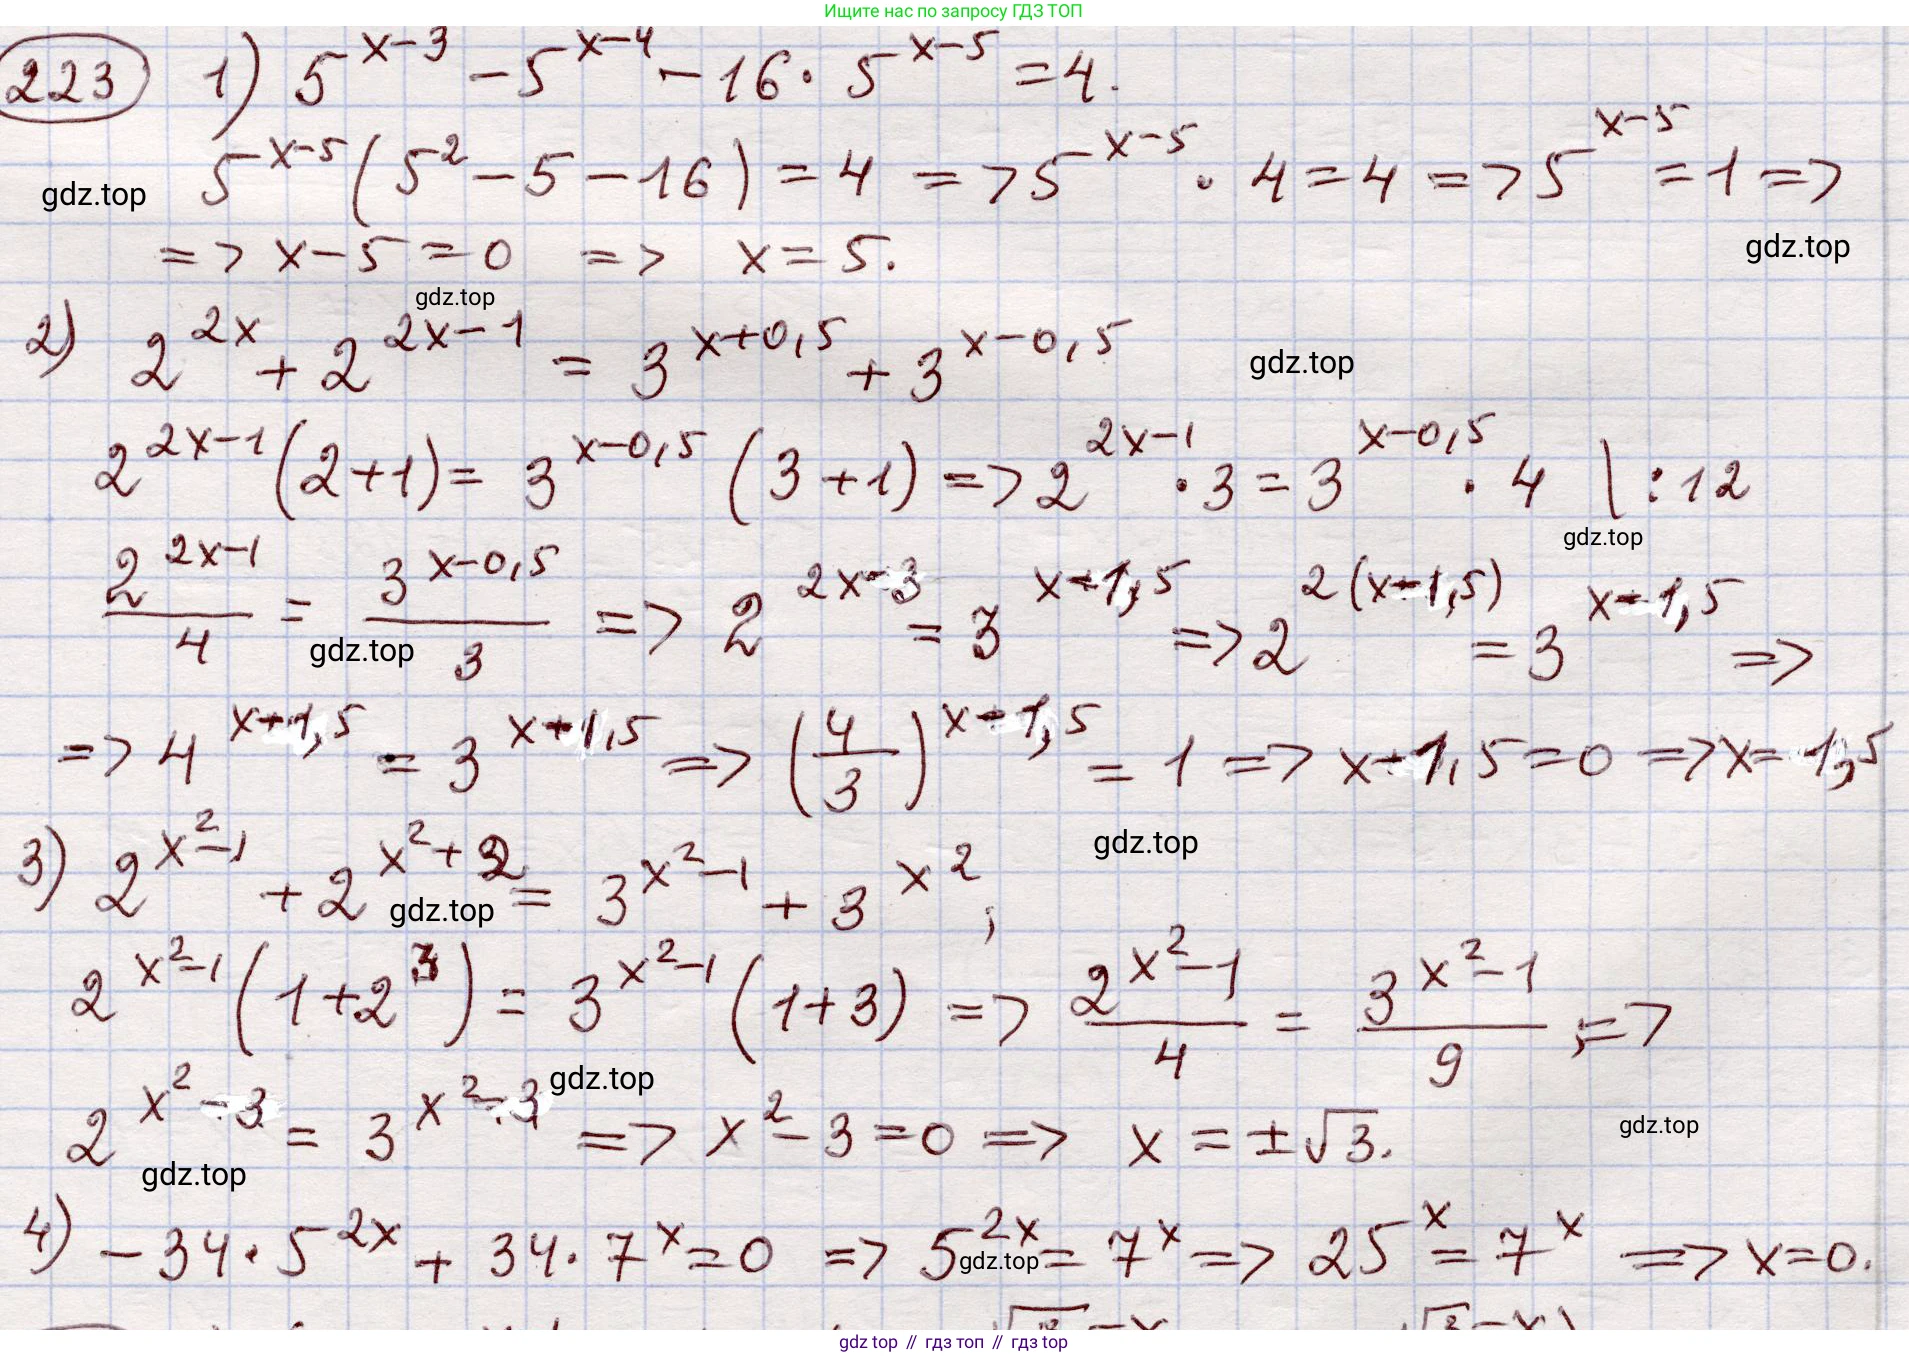 Ищите нас по запросу ГДЗ ТОП
223 1) 5^{x-3} - 5^{x-4} - 16 · 5^{x-5} = 4.
5^{x-5}(5^2 - 5 - 16) = 4 => 5^{x-5} · 4 = 4 => 5^{x-5} = 1 =>
gdz.top
=> x-5=0 => x=5.
gdz.top
gdz.top
2) 2^{2x} + 2^{2x-1} = 3^{x+0,5} + 3^{x-0,5}
gdz.top
2^{2x-1}(2+1) = 3^{x-0,5}(3+1) => 2^{2x-1} · 3 = 3^{x-0,5} · 4 | :12
gdz.top
\frac{2^{2x-1}}{4} = \frac{3^{x-0,5}}{3} => 2^{2x-3} = 3^{x-1,5} => 2^{2(x-1,5)} = 3^{x-1,5} =>
gdz.top
=> 4^{x-1,5} = 3^{x-1,5} => (\frac{4}{3})^{x-1,5} = 1 => x-1,5=0 => x=1,5
gdz.top
3) 2^{x^2-1} + 2^{x^2+2} = 3^{x^2-1} + 3^{x^2};
gdz.top
2^{x^2-1}(1+2^3) = 3^{x^2-1}(1+3) => \frac{2^{x^2-1}}{4} = \frac{3^{x^2-1}}{9}; =>
gdz.top
2^{x^2-3} = 3^{x^2-3} => x^2-3=0 => x=±√3.
gdz.top
gdz.top
4) -34·5^{2x} + 34·7^x = 0 => 5^{2x} = 7^x => 25^x = 7^x => x=0.
gdz.top
gdz top // гдз топ // гдз top